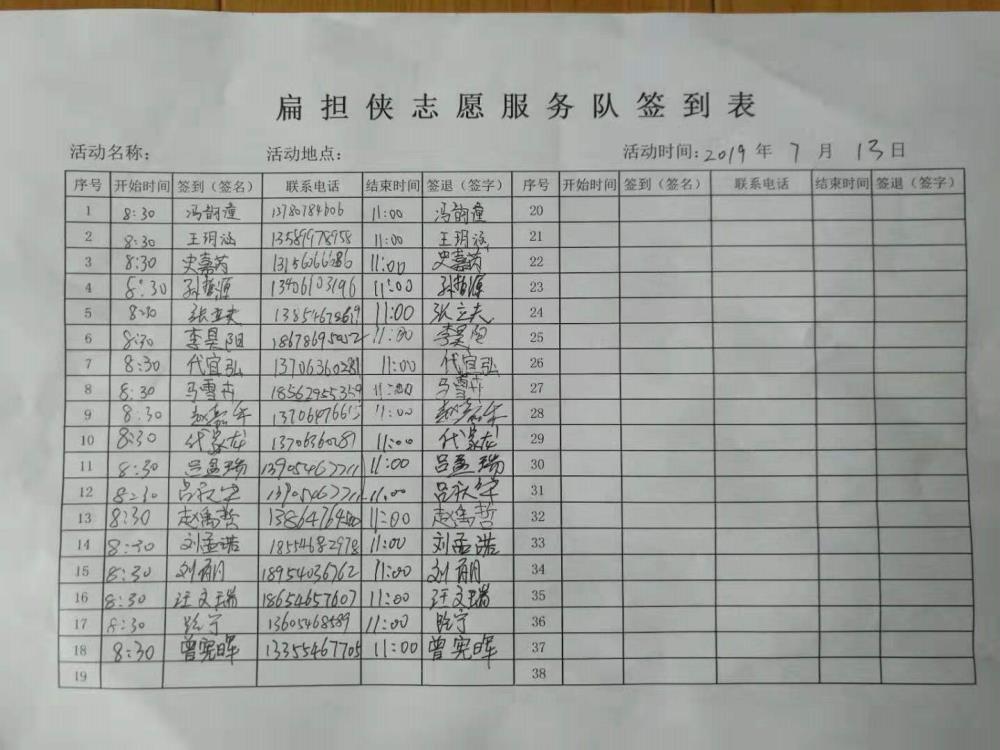 扁担侠志愿服务队签到表
活动名称： 活动地点： 活动时间：2019 年 7 月 13 日
序号 开始时间 签到（签名） 联系电话 结束时间 签退（签字） 序号 开始时间 签到（签名） 联系电话 结束时间 签退（签字）
1 8:30 冯韵潼 11:00 冯韵潼 20
2 8:30 王玥涵 13589978958 11:00 王玥涵 21
3 8:30 史嘉芮 13156066686 11:00 史嘉芮 22
4 8:30 孙哲源 13406103196 11:00 孙哲源 23
5 8:30 张立夫 11:00 张立夫 24
6 8:30 李昊阳 18678695052 11:00 李昊阳 25
7 8:30 代宜弘 13706360281 11:00 代宜弘 26
8 8:30 马雪卉 18562955359 11:00 马雪卉 27
9 8:30 11:00 28
10 8:30 代家友 13706360281 11:00 代家友 29
11 8:30 吕孟瑞 13905467711 11:00 吕孟瑞 30
12 8:30 13905467711 11:00 31
13 8:30 赵禹哲 11:00 赵禹哲 32
14 8:30 刘孟诺 18554682978 11:00 刘孟诺 33
15 8:30 刘 18954036762 11:00 刘 34
16 8:30 汪文瑞 18654657607 11:00 汪文瑞 35
17 8:30 13605468589 11:00 36
18 8:30 曾宪晖 13355467705 11:00 曾宪晖 37
19 38